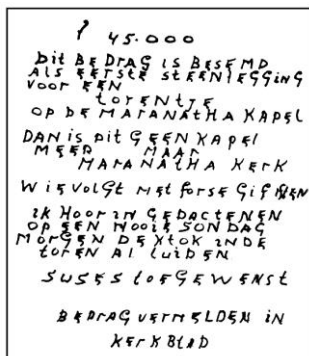 ƒ 45.000
Dit BEDRAG IS BESEMD
ALS EERSTE STEENLEGGiNG
VOOR EEN
tOrENtJE
OP DE MARANATHA KAPEL
DAN is Dit GEEN KAPEL
MEER MAAR
MARANAtHA KErK
WiE VOLGt MEt FOrSE GiFtEN
iK HOOr iN GEDACtENEN
OP EEN MOOiE SONDAG
MOrGEN DE KLOK iNDE
tOrEN AL LUiDEN
SUSES tOEGEWENSt
BEDRAG VErMELDEN iN
KErKBLAD